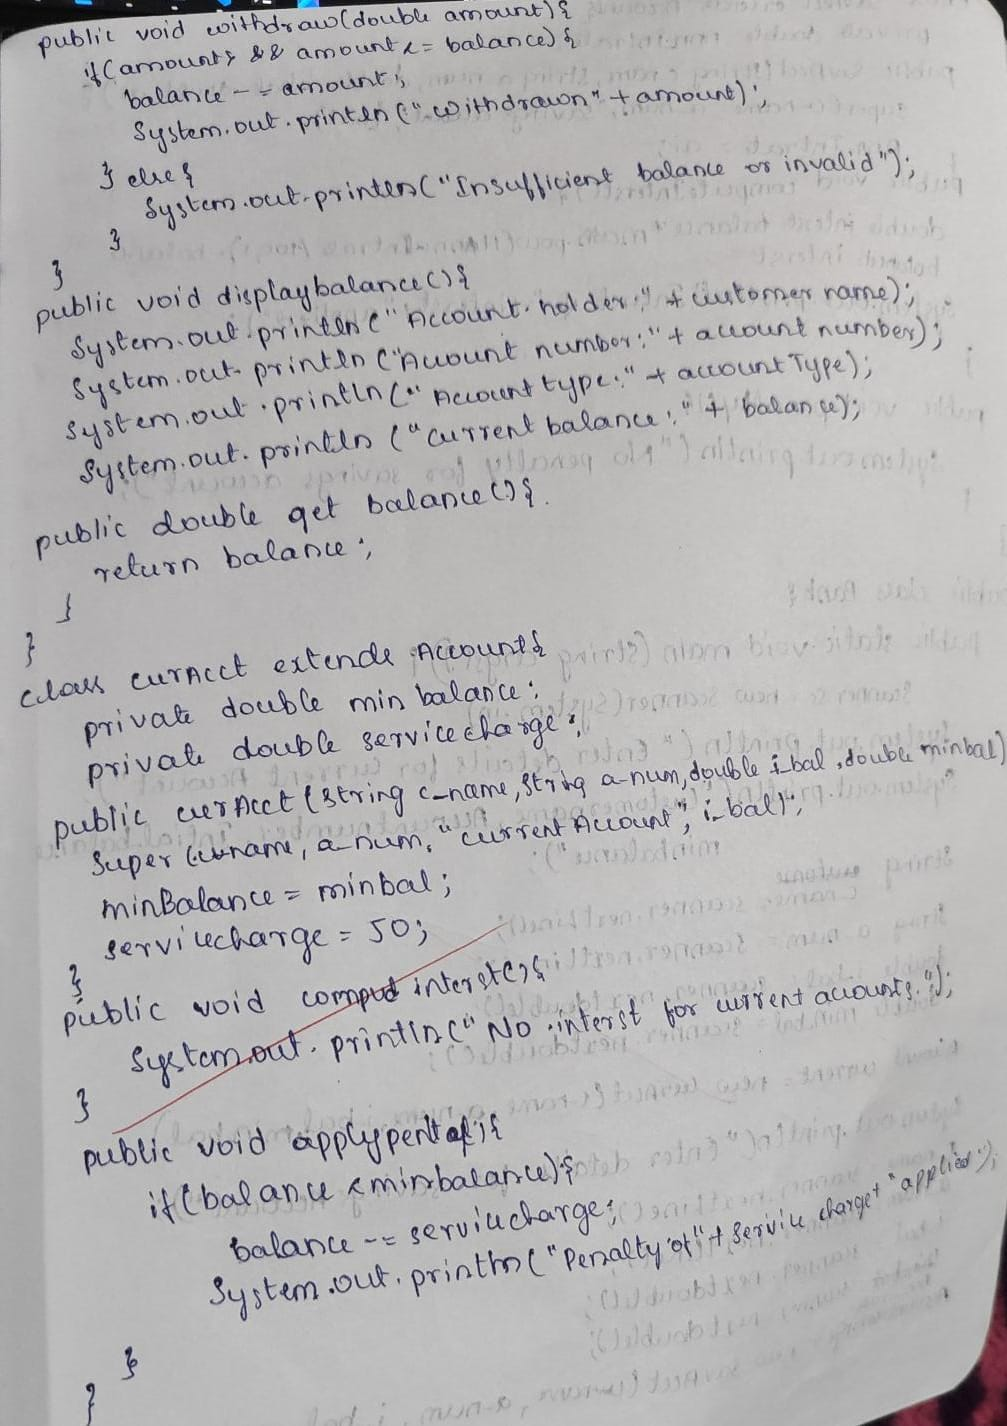 public void withdraw(double amount){
if(amount> && amount <= balance){
balance -= amount;
System.out.println("withdrawn"+amount);
} else {
System.out.println("Insufficient balance or invalid");
}
}
public void displaybalance(){
System.out.println("Account.holder:" + customer name);
System.out.println("Account number:" + account number);
System.out.println("Account type:" + accountType);
System.out.println("current balance:" + balance);
public double get balance(){
return balance;
}
}
class curAcct extends Account{
private double min balance;
private double servicecharge;
public curAcct(String c_name, String a-num, double i_bal, double minbal)
Super(c_name, a-num, "current Account", i_bal);
minBalance = minbal;
servicecharge = 50;
}
public void comput interst(){
System.out.println("No interst for current accounts.");
}
public void apply {
if(balance <minbalance){
balance -= servicecharge;
System.out.println("Penalty of" + Service charge+"applied");
}
}